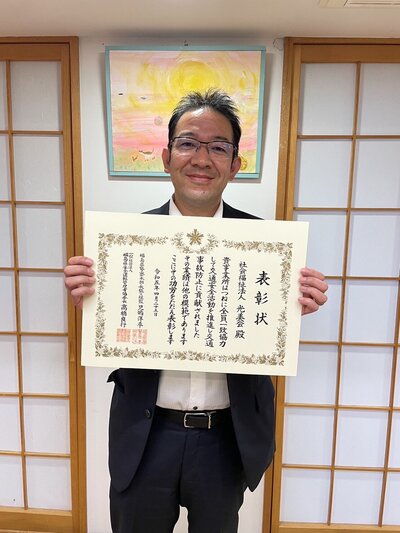 表彰状
社会福祉法人 光美会 殿
貴事業所はつねに全員一致協力
して交通安全活動を推進し交通
事故防止に貢献されました
その業績は他の模範であります
ここにその功労をたたえ表彰します
令和五年四月二十五日